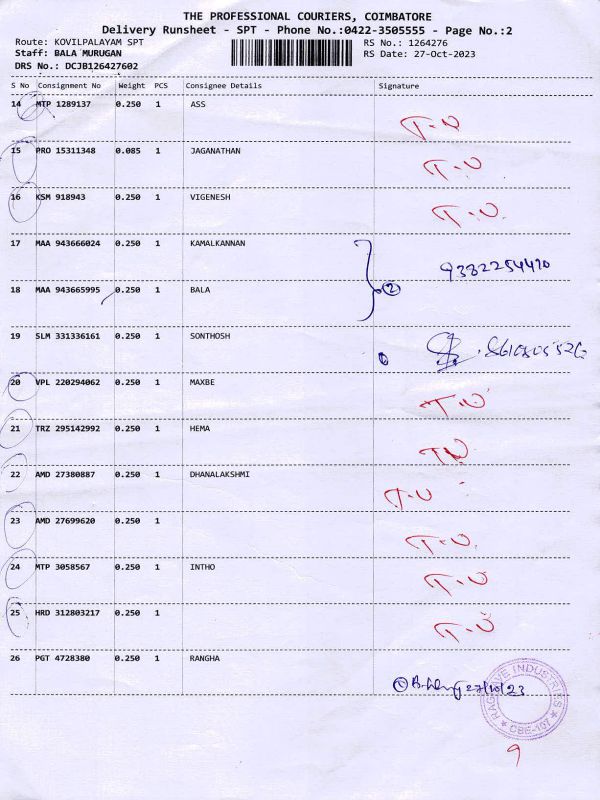 THE PROFESSIONAL COURIERS, COIMBATORE
Delivery Runsheet - SPT - Phone No.:0422-3505555 - Page No.:2
Route: KOVILPALAYAM SPT RS No.: 1264276
Staff: BALA MURUGAN RS Date: 27-Oct-2023
DRS No.: DCJB126427602
S No Consignment No Weight PCS Consignee Details Signature
14 MTP 1289137 0.250 1 ASS T-U
15 PRO 15311348 0.085 1 JAGANATHAN T-U
16 KSM 918943 0.250 1 VIGENESH T-U
17 MAA 943666024 0.250 1 KAMALKANNAN 9382254410
18 MAA 943665995 0.250 1 BALA 2
19 SLM 331336161 0.250 1 SONTHOSH
20 VPL 220294062 0.250 1 MAXBE T-U
21 TRZ 295142992 0.250 1 HEMA TU
22 AMD 27380887 0.250 1 DHANALAKSHMI T-U
23 AMD 27699620 0.250 1 T-U
24 MTP 3058567 0.250 1 INTHO T-U
25 HRD 312803217 0.250 1 T-U
26 PGT 4728380 0.250 1 RANGHA 1 27/10/23
INDUSTRIES
CBE-107
9